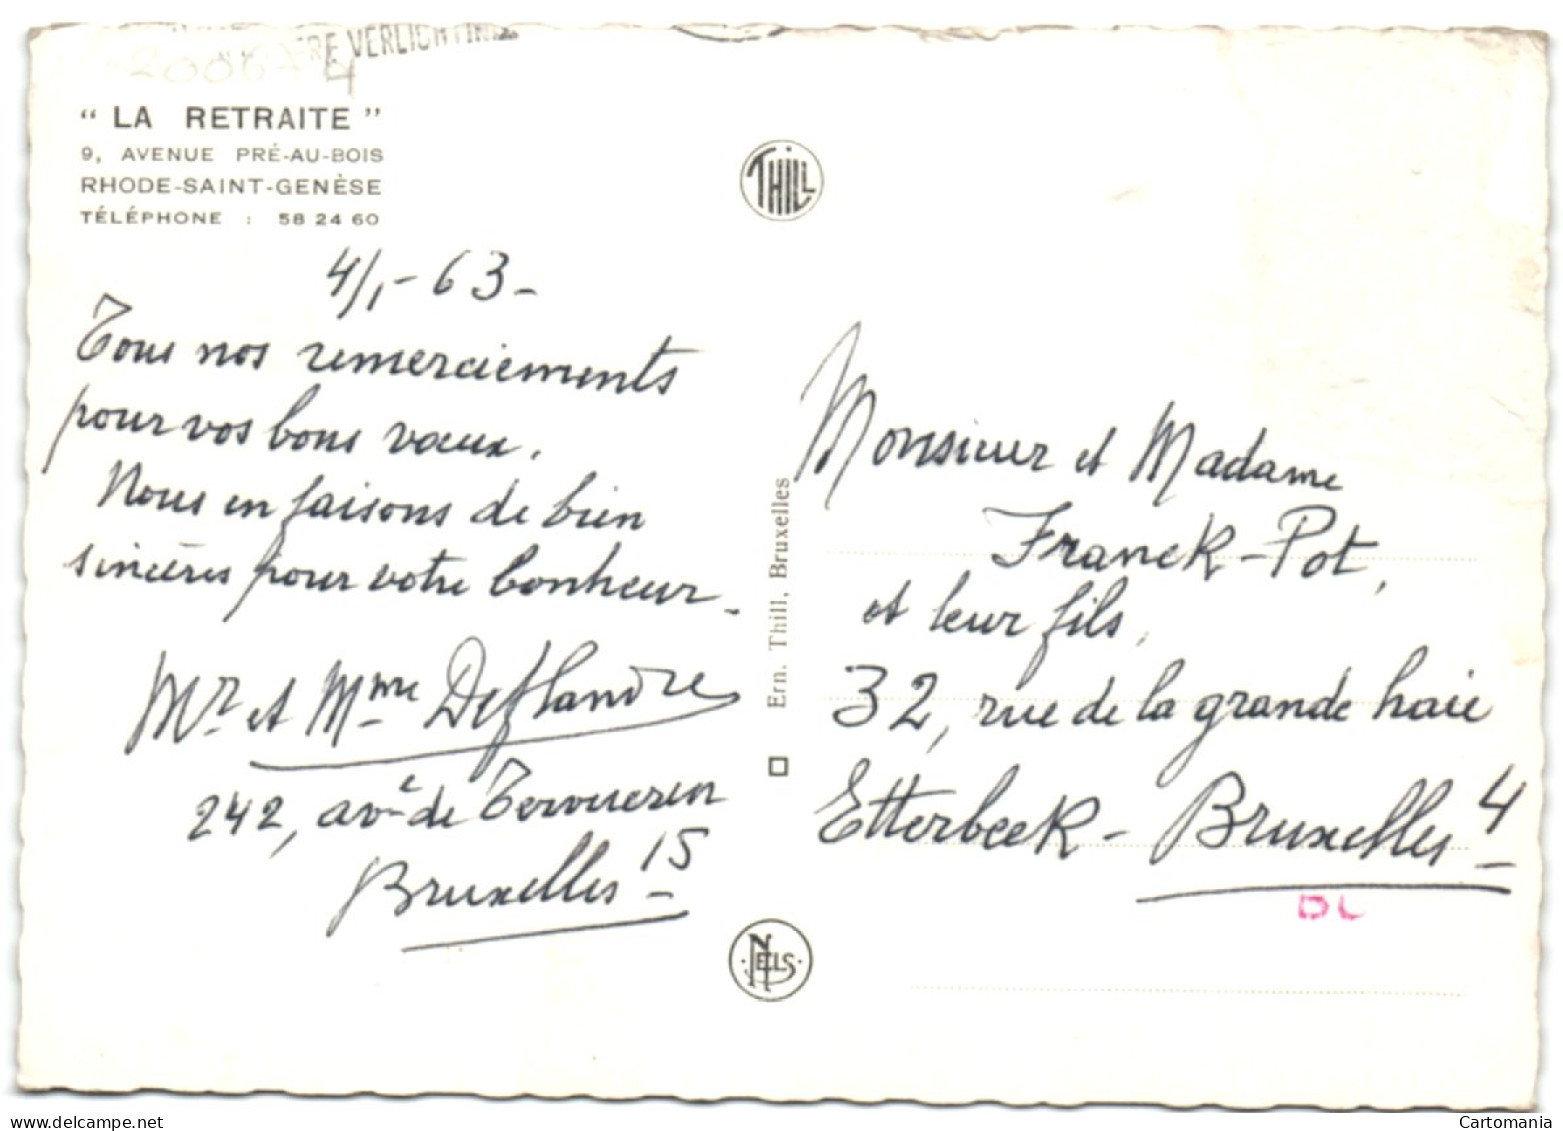 VERLICHTING
4
" LA RETRAITE "
9, AVENUE PRÉ-AU-BOIS
RHODE-SAINT-GENÈSE
TÉLÉPHONE : 58 24 60
4/1-63-
Tous nos remerciements
pour vos bons vœux.
Nous en faisons de bien
sincères pour votre bonheur-
Mr et Mme Deflandre
242, ave de Tervueren
Bruxelles 15
THILL
Ern. Thill, Bruxelles
NELS
Monsieur et Madame
Franck-Pot,
et leur fils,
32, rue de la grande haie
Etterbeek - Bruxelles 4
delcampe.net
Cartomania